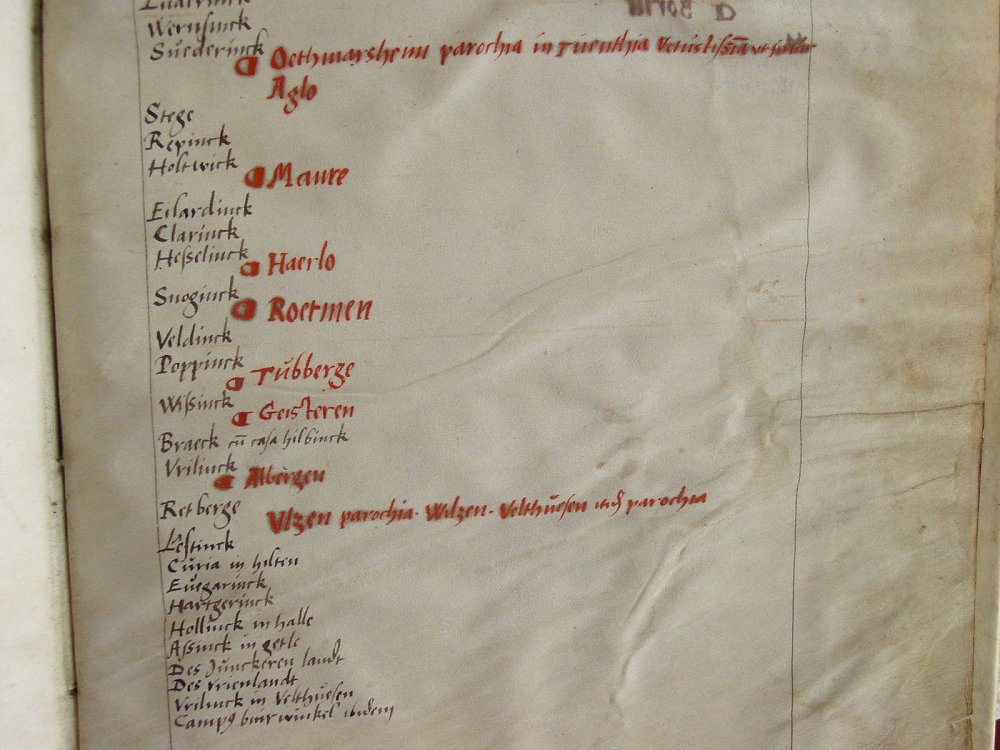 Wernsinck
Suederinck
Oethmarsheim parochia in Tuenthia vetustissīa ut
Aglo
Stege
Repinck
Holtwick
Maure
Eilardinck
Clarinck
Hesselinck
Haerlo
Snoginck
Roetmen
Veldinck
Poppinck
Tubberge
Wißinck
Geisteren
Braeck cū casa hilbinck
Vrilinck
Albergen
Retberge
Vlzen parochia. Wilzen. Velthuesen parochia
Lestinck
Curia in hilten
Euegarinck
Hartgerinck
Hollinck in halle
Aßinck in getle
Des Junckeren landt
Des vrienlandt
Vrilinck in Velthuesen
winkel ibidem